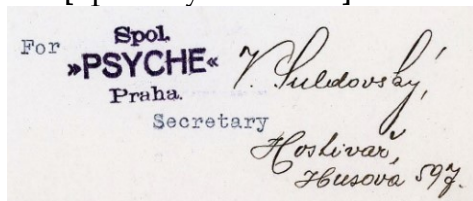 For
Spol.
»PSYCHE«
Praha.
Secretary
Hostivař,
Husova 597.